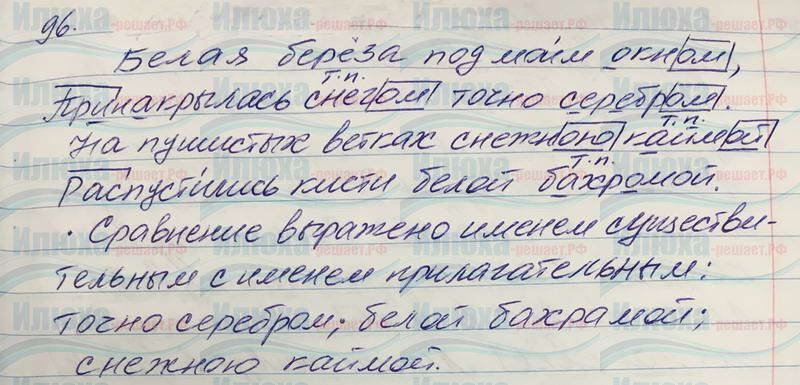 96.
Белая берёза под маим окном,
т.п.
Принакрылась снегом точно серебром.
т.п.
На пушистых ветках снежною каймой
т.п.
Распустились кисти белой бахромой.
· Сравнение выражено именем существи-
тельным с именем прилагательным:
точно серебром; белой бахрамой;
снежною каймой.
Илюха
-решает.РФ